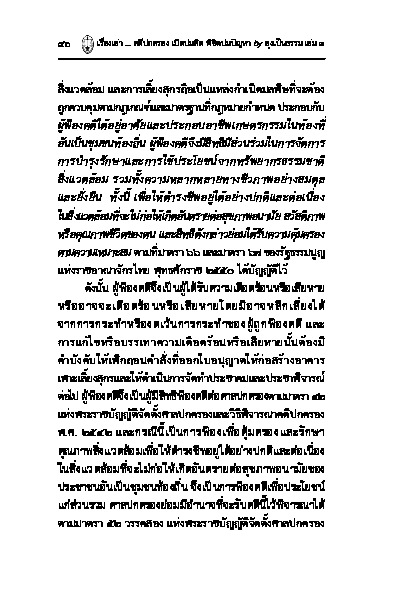 ๔๖ เรื่องเล่า ... คดีปกครอง เปิดปมคิด พิชิตปมปัญหา by ลุงเป็นธรรม เล่ม ๓
สิ่งแวดล้อม และการเลี้ยงสุกรถือเป็นแหล่งกำเนิดมลพิษที่จะต้อง
ถูกควบคุมตามกฎเกณฑ์และมาตรฐานที่กฎหมายกำหนด ประกอบกับ
ผู้ฟ้องคดีได้อยู่อาศัยและประกอบอาชีพเกษตรกรรมในท้องที่
อันเป็นชุมชนท้องถิ่น ผู้ฟ้องคดีจึงมีสิทธิมีส่วนร่วมในการจัดการ
การบำรุงรักษาและการใช้ประโยชน์จากทรัพยากรธรรมชาติ
สิ่งแวดล้อม รวมทั้งความหลากหลายทางชีวภาพอย่างสมดุล
และยั่งยืน ทั้งนี้ เพื่อให้ดำรงชีพอยู่ได้อย่างปกติและต่อเนื่อง
ในสิ่งแวดล้อมที่จะไม่ก่อให้เกิดอันตรายต่อสุขภาพอนามัย สวัสดิภาพ
หรือคุณภาพชีวิตของตน และสิทธิดังกล่าวย่อมได้รับความคุ้มครอง
ตามความเหมาะสม ตามที่มาตรา ๖๖ และมาตรา ๖๗ ของรัฐธรรมนูญ
แห่งราชอาณาจักรไทย พุทธศักราช ๒๕๕๐ ได้บัญญัติไว้
ดังนั้น ผู้ฟ้องคดีจึงเป็นผู้ได้รับความเดือดร้อนหรือเสียหาย
หรืออาจจะเดือดร้อนหรือเสียหายโดยมิอาจหลีกเลี่ยงได้
จากการกระทำหรืองดเว้นการกระทำของผู้ถูกฟ้องคดี และ
การแก้ไขหรือบรรเทาความเดือดร้อนหรือเสียหายนั้นต้องมี
คำบังคับให้เพิกถอนคำสั่งที่ออกใบอนุญาตให้ก่อสร้างอาคาร
เพาะเลี้ยงสุกรและให้ดำเนินการจัดทำประชาคมและประชาพิจารณ์
ต่อไป ผู้ฟ้องคดีจึงเป็นผู้มีสิทธิฟ้องคดีต่อศาลปกครองตามมาตรา ๔๒
แห่งพระราชบัญญัติจัดตั้งศาลปกครองและวิธีพิจารณาคดีปกครอง
พ.ศ. ๒๕๔๒ และกรณีนี้เป็นการฟ้องเพื่อคุ้มครองและรักษา
คุณภาพสิ่งแวดล้อมเพื่อให้ดำรงชีพอยู่ได้อย่างปกติและต่อเนื่อง
ในสิ่งแวดล้อมที่จะไม่ก่อให้เกิดอันตรายต่อสุขภาพอนามัยของ
ประชาชนอันเป็นชุมชนท้องถิ่น จึงเป็นการฟ้องคดีเพื่อประโยชน์
แก่ส่วนรวม ศาลปกครองย่อมมีอำนาจที่จะรับคดีนี้ไว้พิจารณาได้
ตามมาตรา ๕๒ วรรคสอง แห่งพระราชบัญญัติจัดตั้งศาลปกครอง